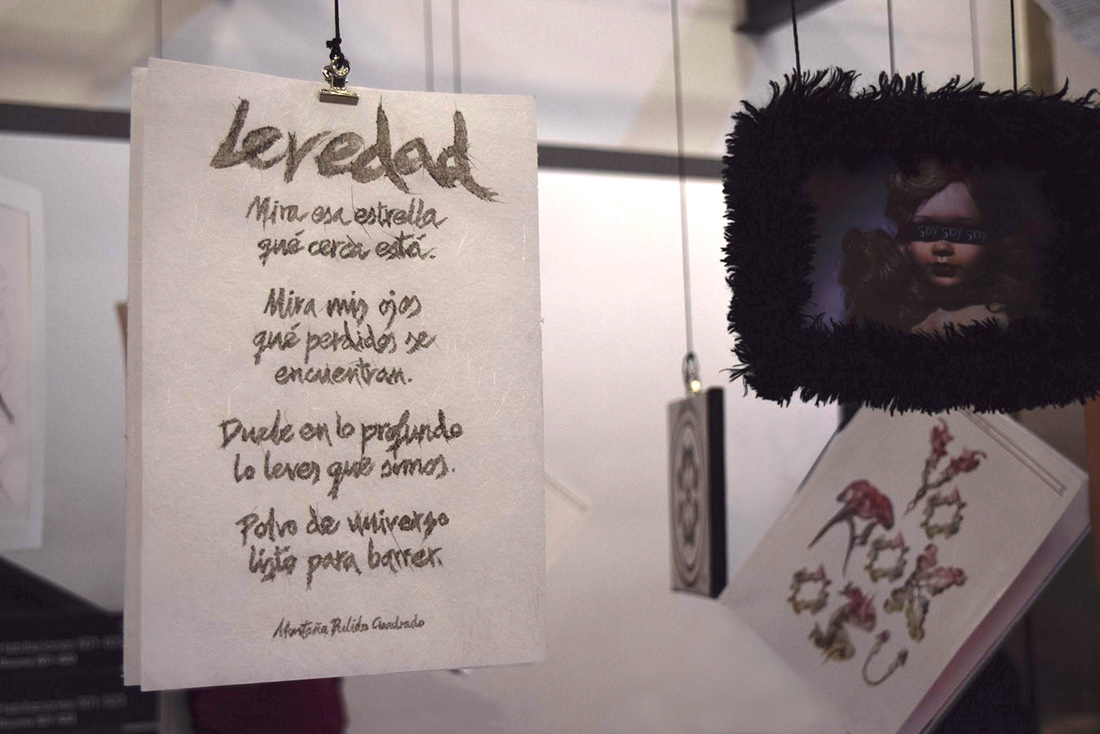 Levedad
Mira esa estrella
qué cerca está.
Mira mis ojos
qué perdidos se
encuentran.
Duele en lo profundo
lo leves que símos.
Polvo de universo
listo para barrer.
Montaña Pulido Cuadrado
SOY SOY SOY